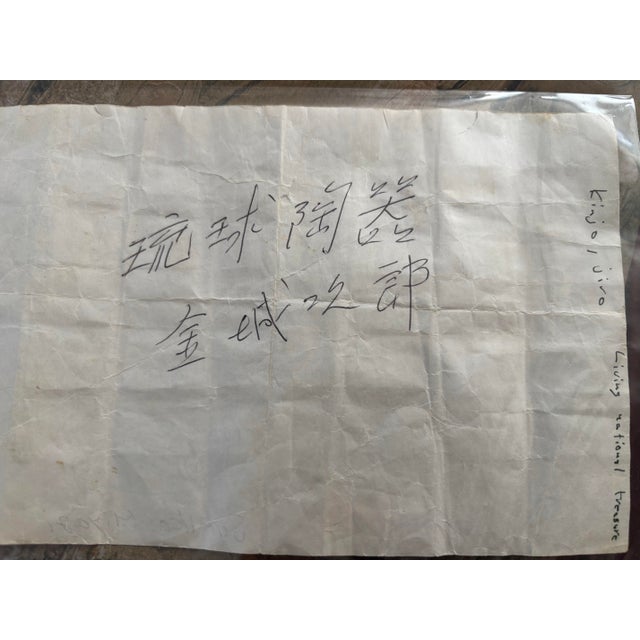 琉球陶器
金城次郎
Kinjo, Jiro
Living national treasure